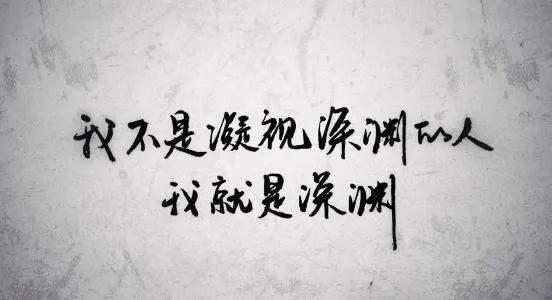 我不是凝视深渊的人
我就是深渊